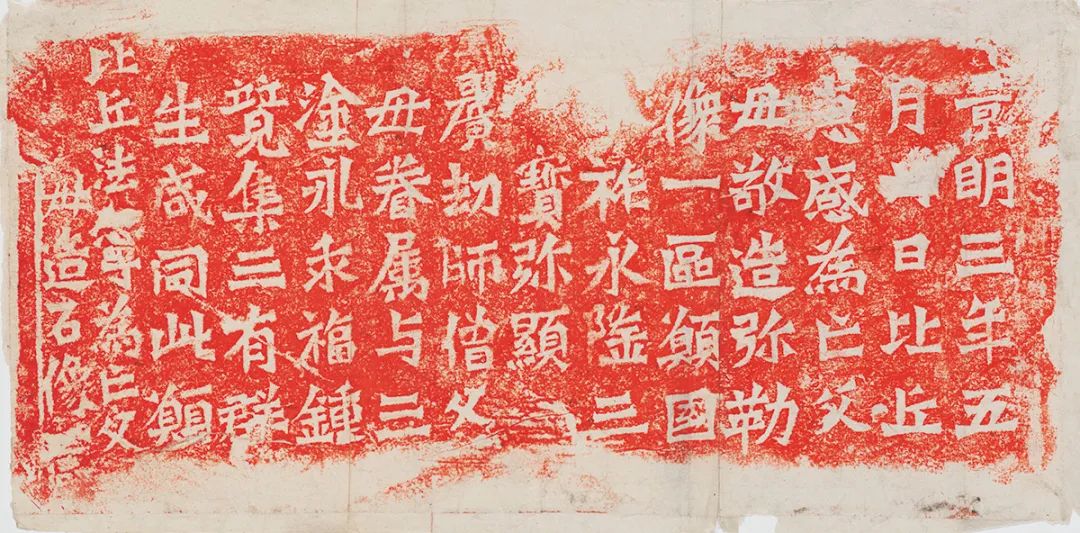 景眀三年五
月日比丘
惠感為亡父
母敬造弥勒
像一區願國
祚永隆三
寳弥顯
曠劫師僧父
母眷属与三
塗永乖福鍾
竟集三有群
生咸同此願
比丘法寧為亡父
母造石像